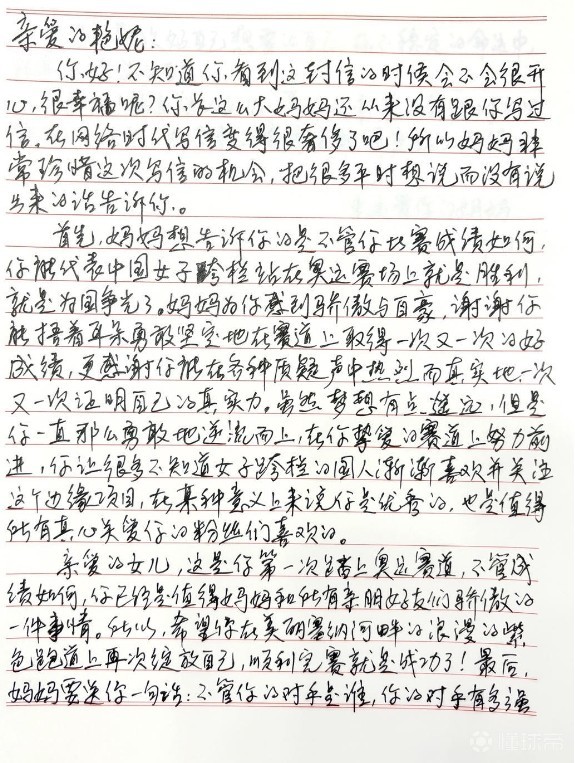 亲爱的艳妮：
你好！不知道你看到这封信的时候会不会很开
心，很幸福呢？你长这么大妈妈还从来没有跟你写过
信。在网络时代写信变得很奢侈了吧！所以妈妈非
常珍惜这次写信的机会，把很多平时想说而没有说
出来的话告诉你。
首先，妈妈想告诉你的是不管你比赛成绩如何，
你能代表中国女子跨栏站在奥运赛场上就是胜利，
就是为国争光了。妈妈为你感到骄傲与自豪，谢谢你
能捂着耳朵勇敢坚定地在赛道上取得一次又一次的好
成绩，更感谢你能在各种质疑声中热烈而真实地一次
又一次证明自己的真实力。虽然梦想有点遥远，但是
你一直那么勇敢地逆流而上，在你挚爱的赛道上努力前
进，你让很多不知道女子跨栏的国人渐渐喜欢并关注
这个边缘项目，在某种意义上来说你是优秀的，也是值得
所有真心关爱你的粉丝们喜欢的。
亲爱的女儿，这是你第一次踏上奥运赛道，不管成
绩如何，你已经是值得妈妈和所有亲朋好友们骄傲的
一件事情。所以，希望你在美丽塞纳河畔的浪漫的紫
色跑道上再次绽放自己，顺利完赛就是成功了！最后，
妈妈要送你一句话：不管你的对手是谁，你的对手有多强
懂球帝